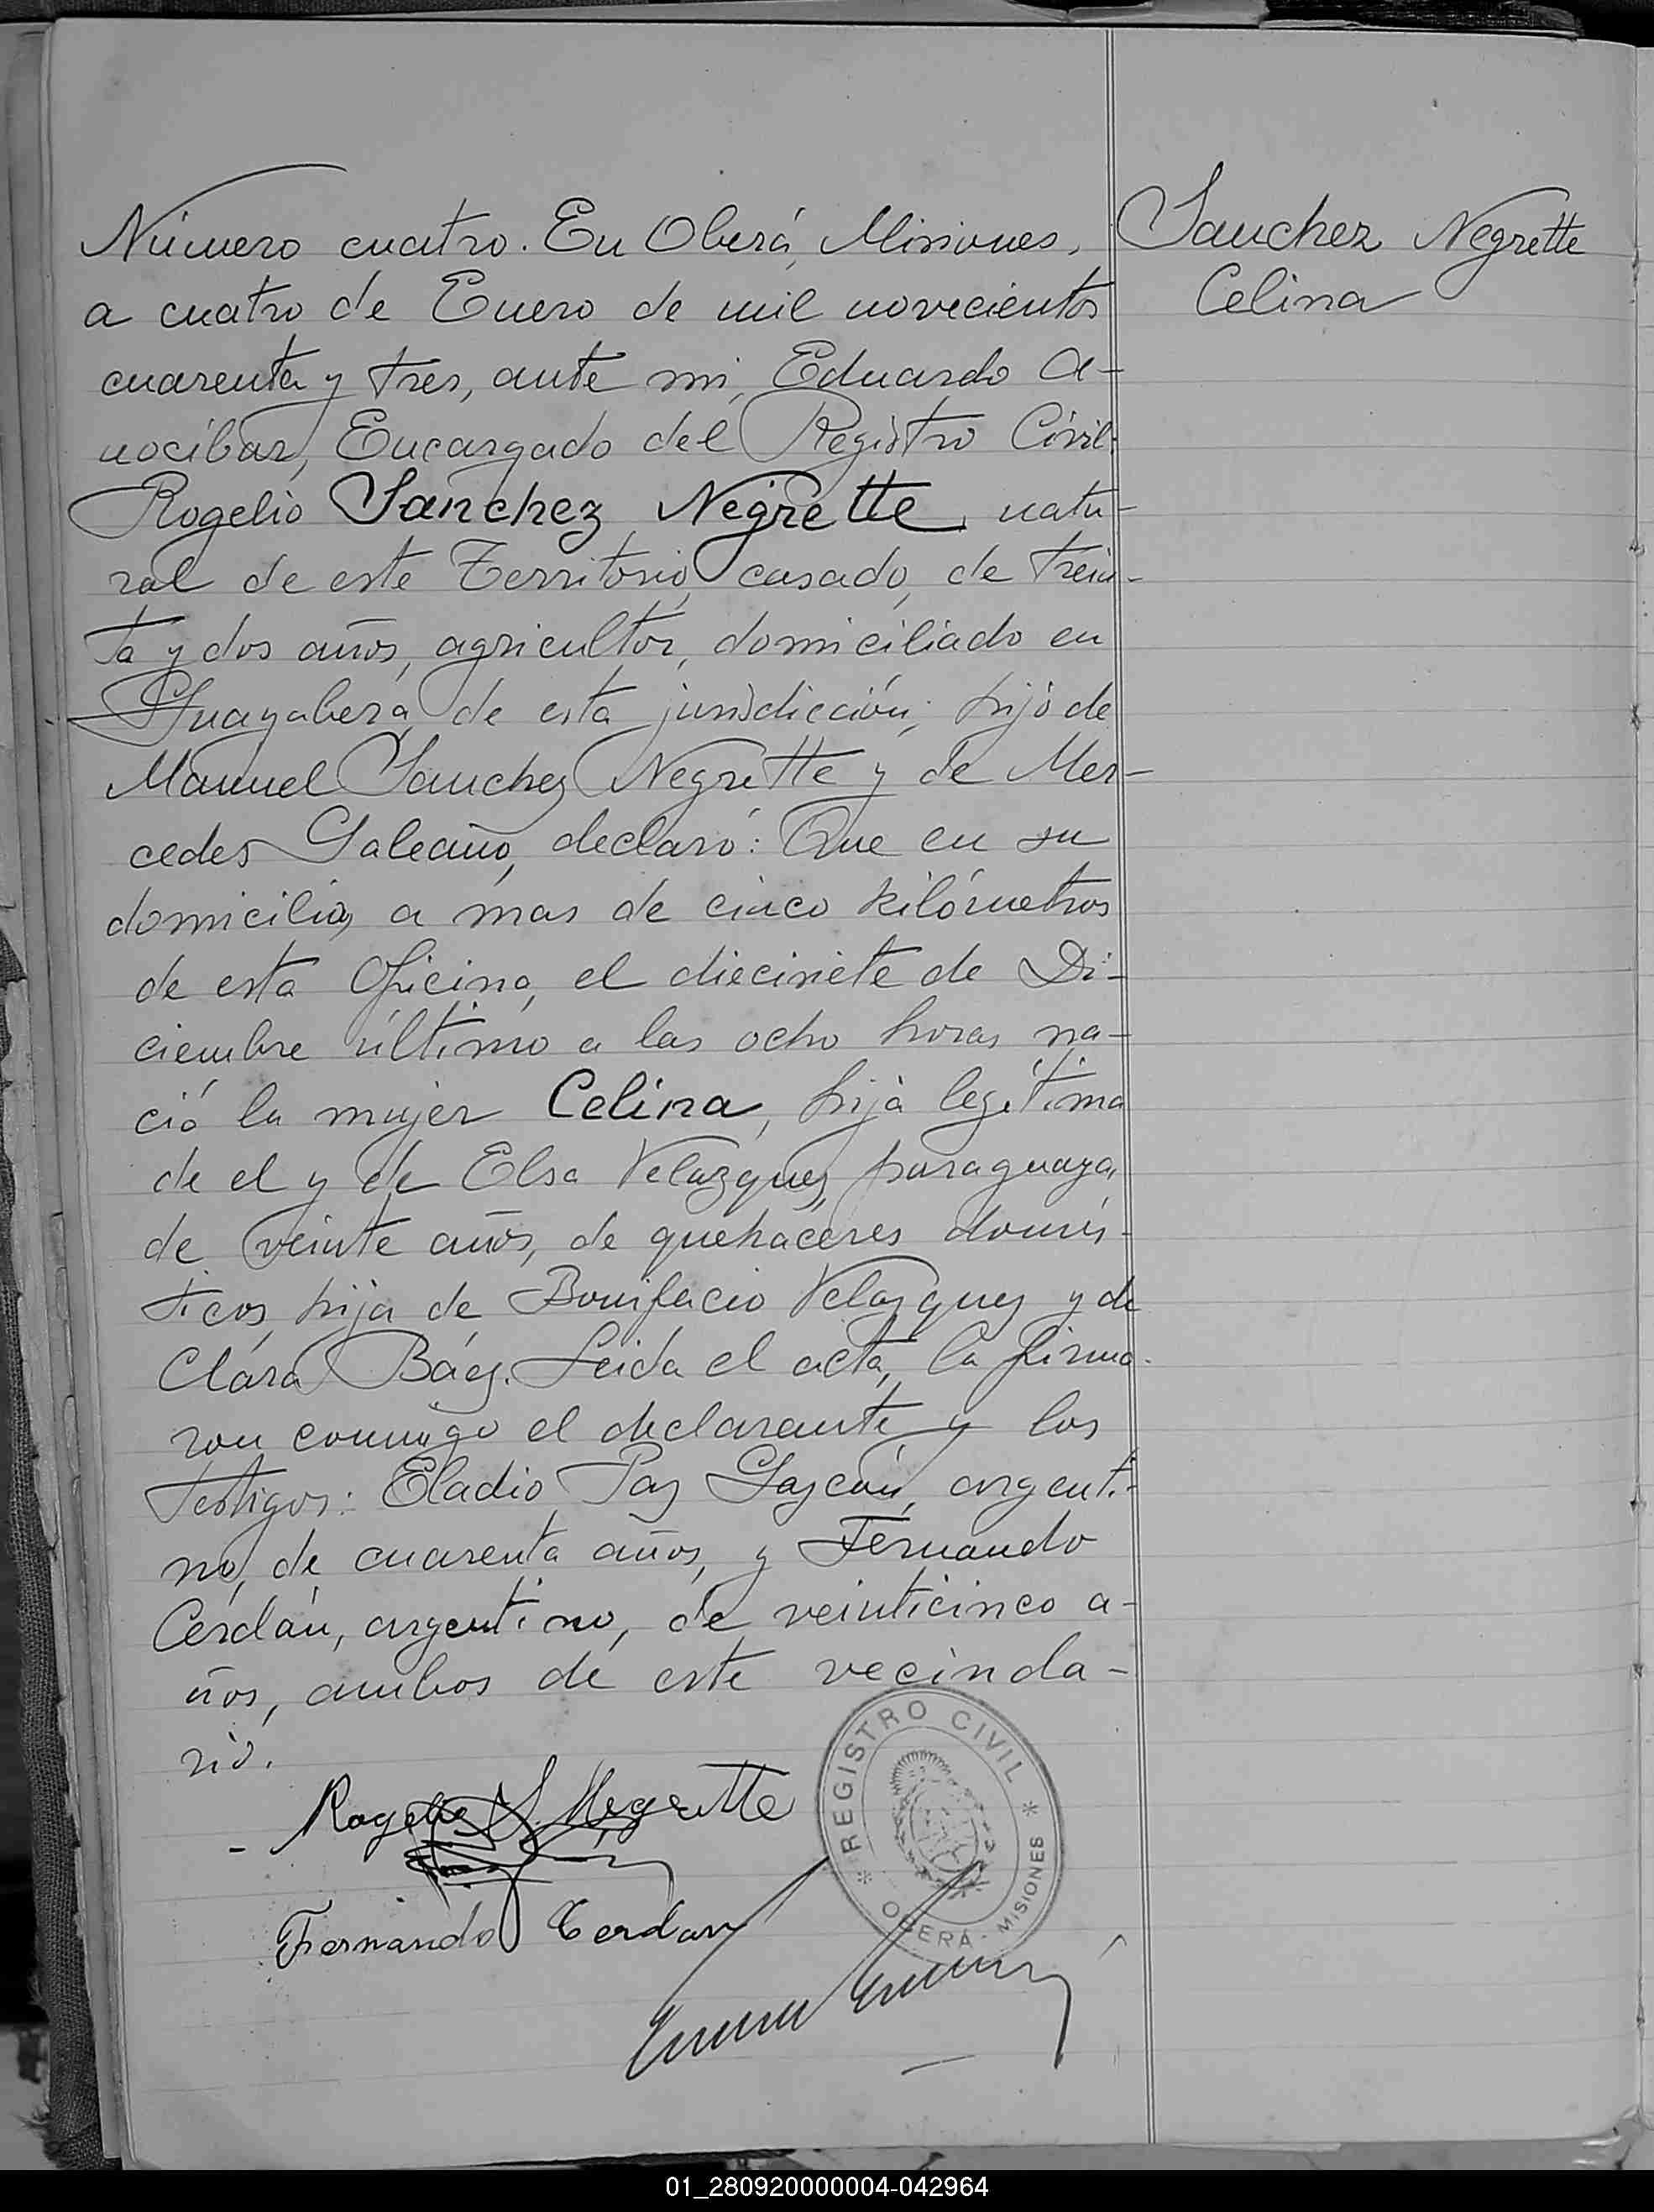 Número cuatro. En Oberá, Misiones,
a cuatro de Enero de mil novecientos
cuarenta y tres, ante mi, Eduardo A-
nocíbar, Encargado del Registro Civil:
Rogelio Sanchez Negrette, natu-
ral de este Territorio, casado, de trein-
ta y dos años, agricultor, domiciliado en
Guayabera, de esta jurisdicción; hijo de
Manuel Sanchez Negrette y de Mer-
cedes Galeano, declaró: Que en su
domicilio, a mas de cinco kilómetros
de esta Oficina, el diecisiete de Di-
ciembre último a las ocho horas na-
ció la mujer Celina, hija legítima
de el y de Elsa Velazquez, paraguaya,
de veinte años, de quehaceres domés-
ticos, hija de Bonifacio Velazquez y de
Clara Báez. Leida el acta, la firma-
ron conmigo el declarante y los
testigos: Eladio Paz, argenti-
no, de cuarenta años, y Fernando
Cerdán, argentino, de veinticinco a-
ños, ambos de este vecinda-
rio.
Sanchez Negrette
Celina
Rogelio S. Negrette
Fernando Cerdan
REGISTRO CIVIL
OBERÁ - MISIONES
01_280920000004-042964